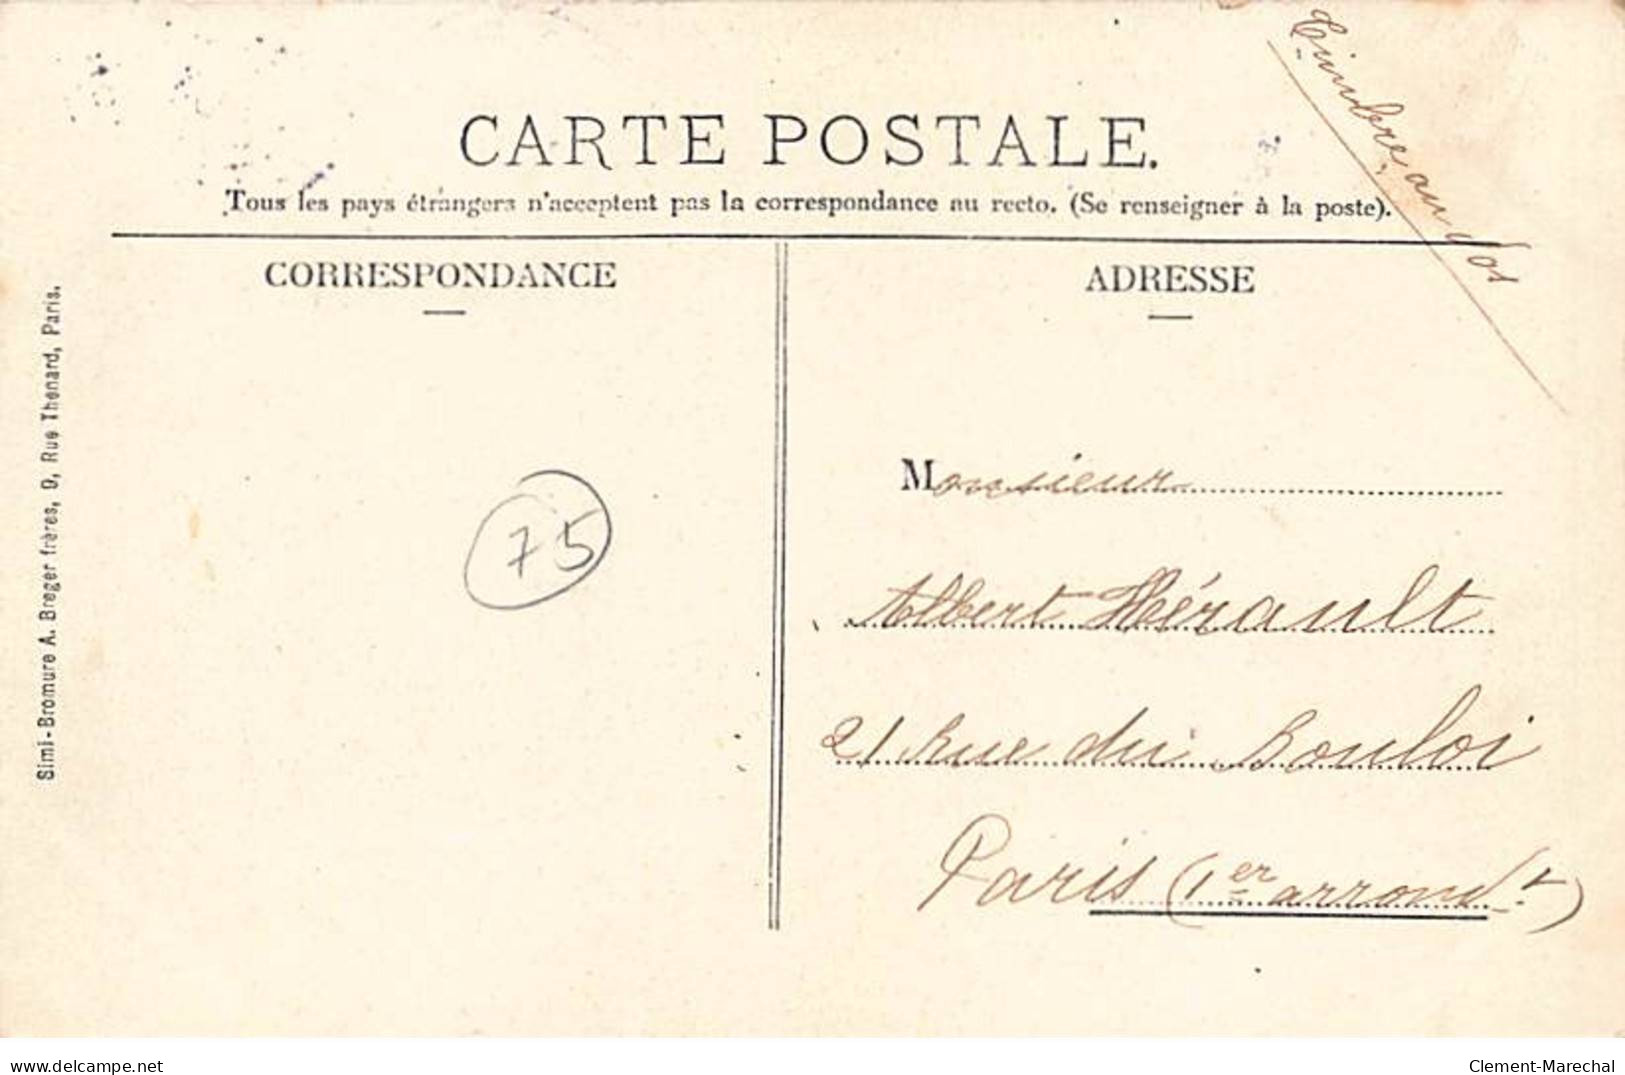 Timbre au dos
CARTE POSTALE.
Tous les pays étrangers n'acceptent pas la correspondance au recto. (Se renseigner à la poste).
CORRESPONDANCE
ADRESSE
Simi-Bromure A. Breger frères, 9, Rue Thenard, Paris.
75
Monsieur
Albert Hérault
21 Rue du Bouloi
Paris (1er arrondt)
www.delcampe.net
Clement-Marechal